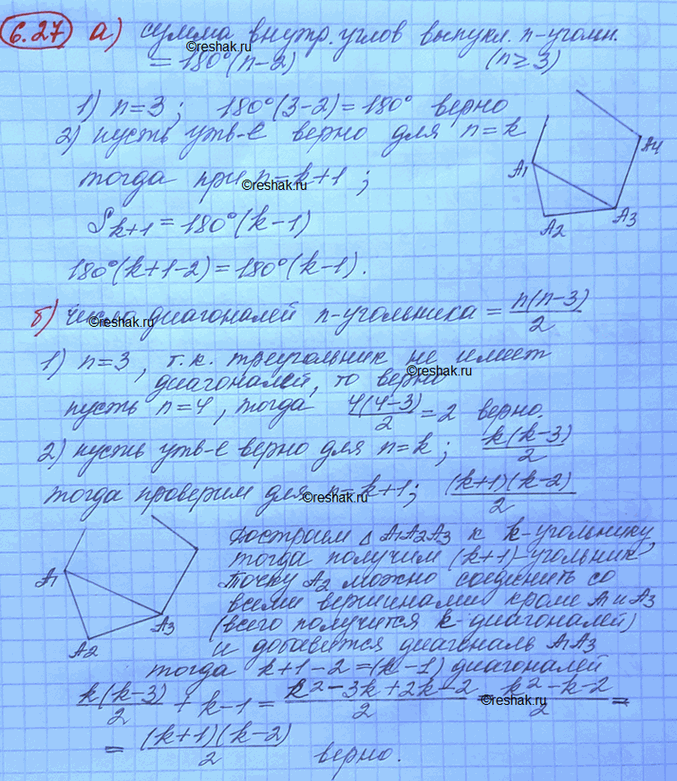 6.27 а) сумма внутр. углов выпукл. n-угольн.
= 180°(n-2) (n≥3)
1) n=3; 180°(3-2)=180° верно
2) пусть утв-е верно для n=k
тогда при n=k+1;
S_{k+1} = 180°(k-1)
180°(k+1-2)=180°(k-1).
A1 A2 A3 A4
б) число диагоналей n-угольника = n(n-3)/2
1) n=3, т.к. треугольник не имеет
диагоналей, то верно
пусть n=4, тогда 4(4-3)/2 = 2 верно.
2) пусть утв-е верно для n=k; k(k-3)/2
тогда проверим для n=k+1; (k+1)(k-2)/2
A1 A2 A3
Достроим Δ A1A2A3 к k-угольнику,
тогда получим (k+1)-угольник
Точку A2 можно соединить со
всеми вершинами кроме A1 и A3
(всего получится k-диагоналей)
и добавится диагональ A1A3
тогда k+1-2=(k-1) диагоналей
k(k-3)/2 + k-1 = k²-3k+2k-2/2 = k²-k-2/2 =
= (k+1)(k-2)/2 верно.
©reshak.ru
©reshak.ru
©reshak.ru
©reshak.ru
©reshak.ru
©reshak.ru
©reshak.ru